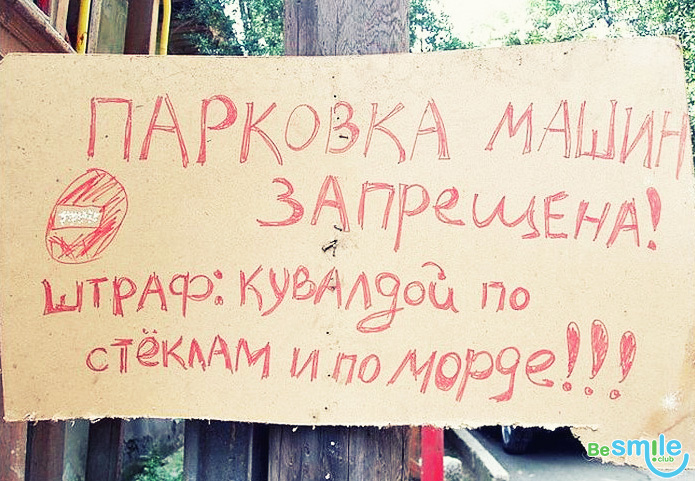 ПАРКОВКА МАШИН
ЗАПРЕЩЕНА!
ШТРАФ: КУВАЛДОЙ ПО
СТЁКЛАМ И ПО МОРДЕ!!!
Besmile
.club